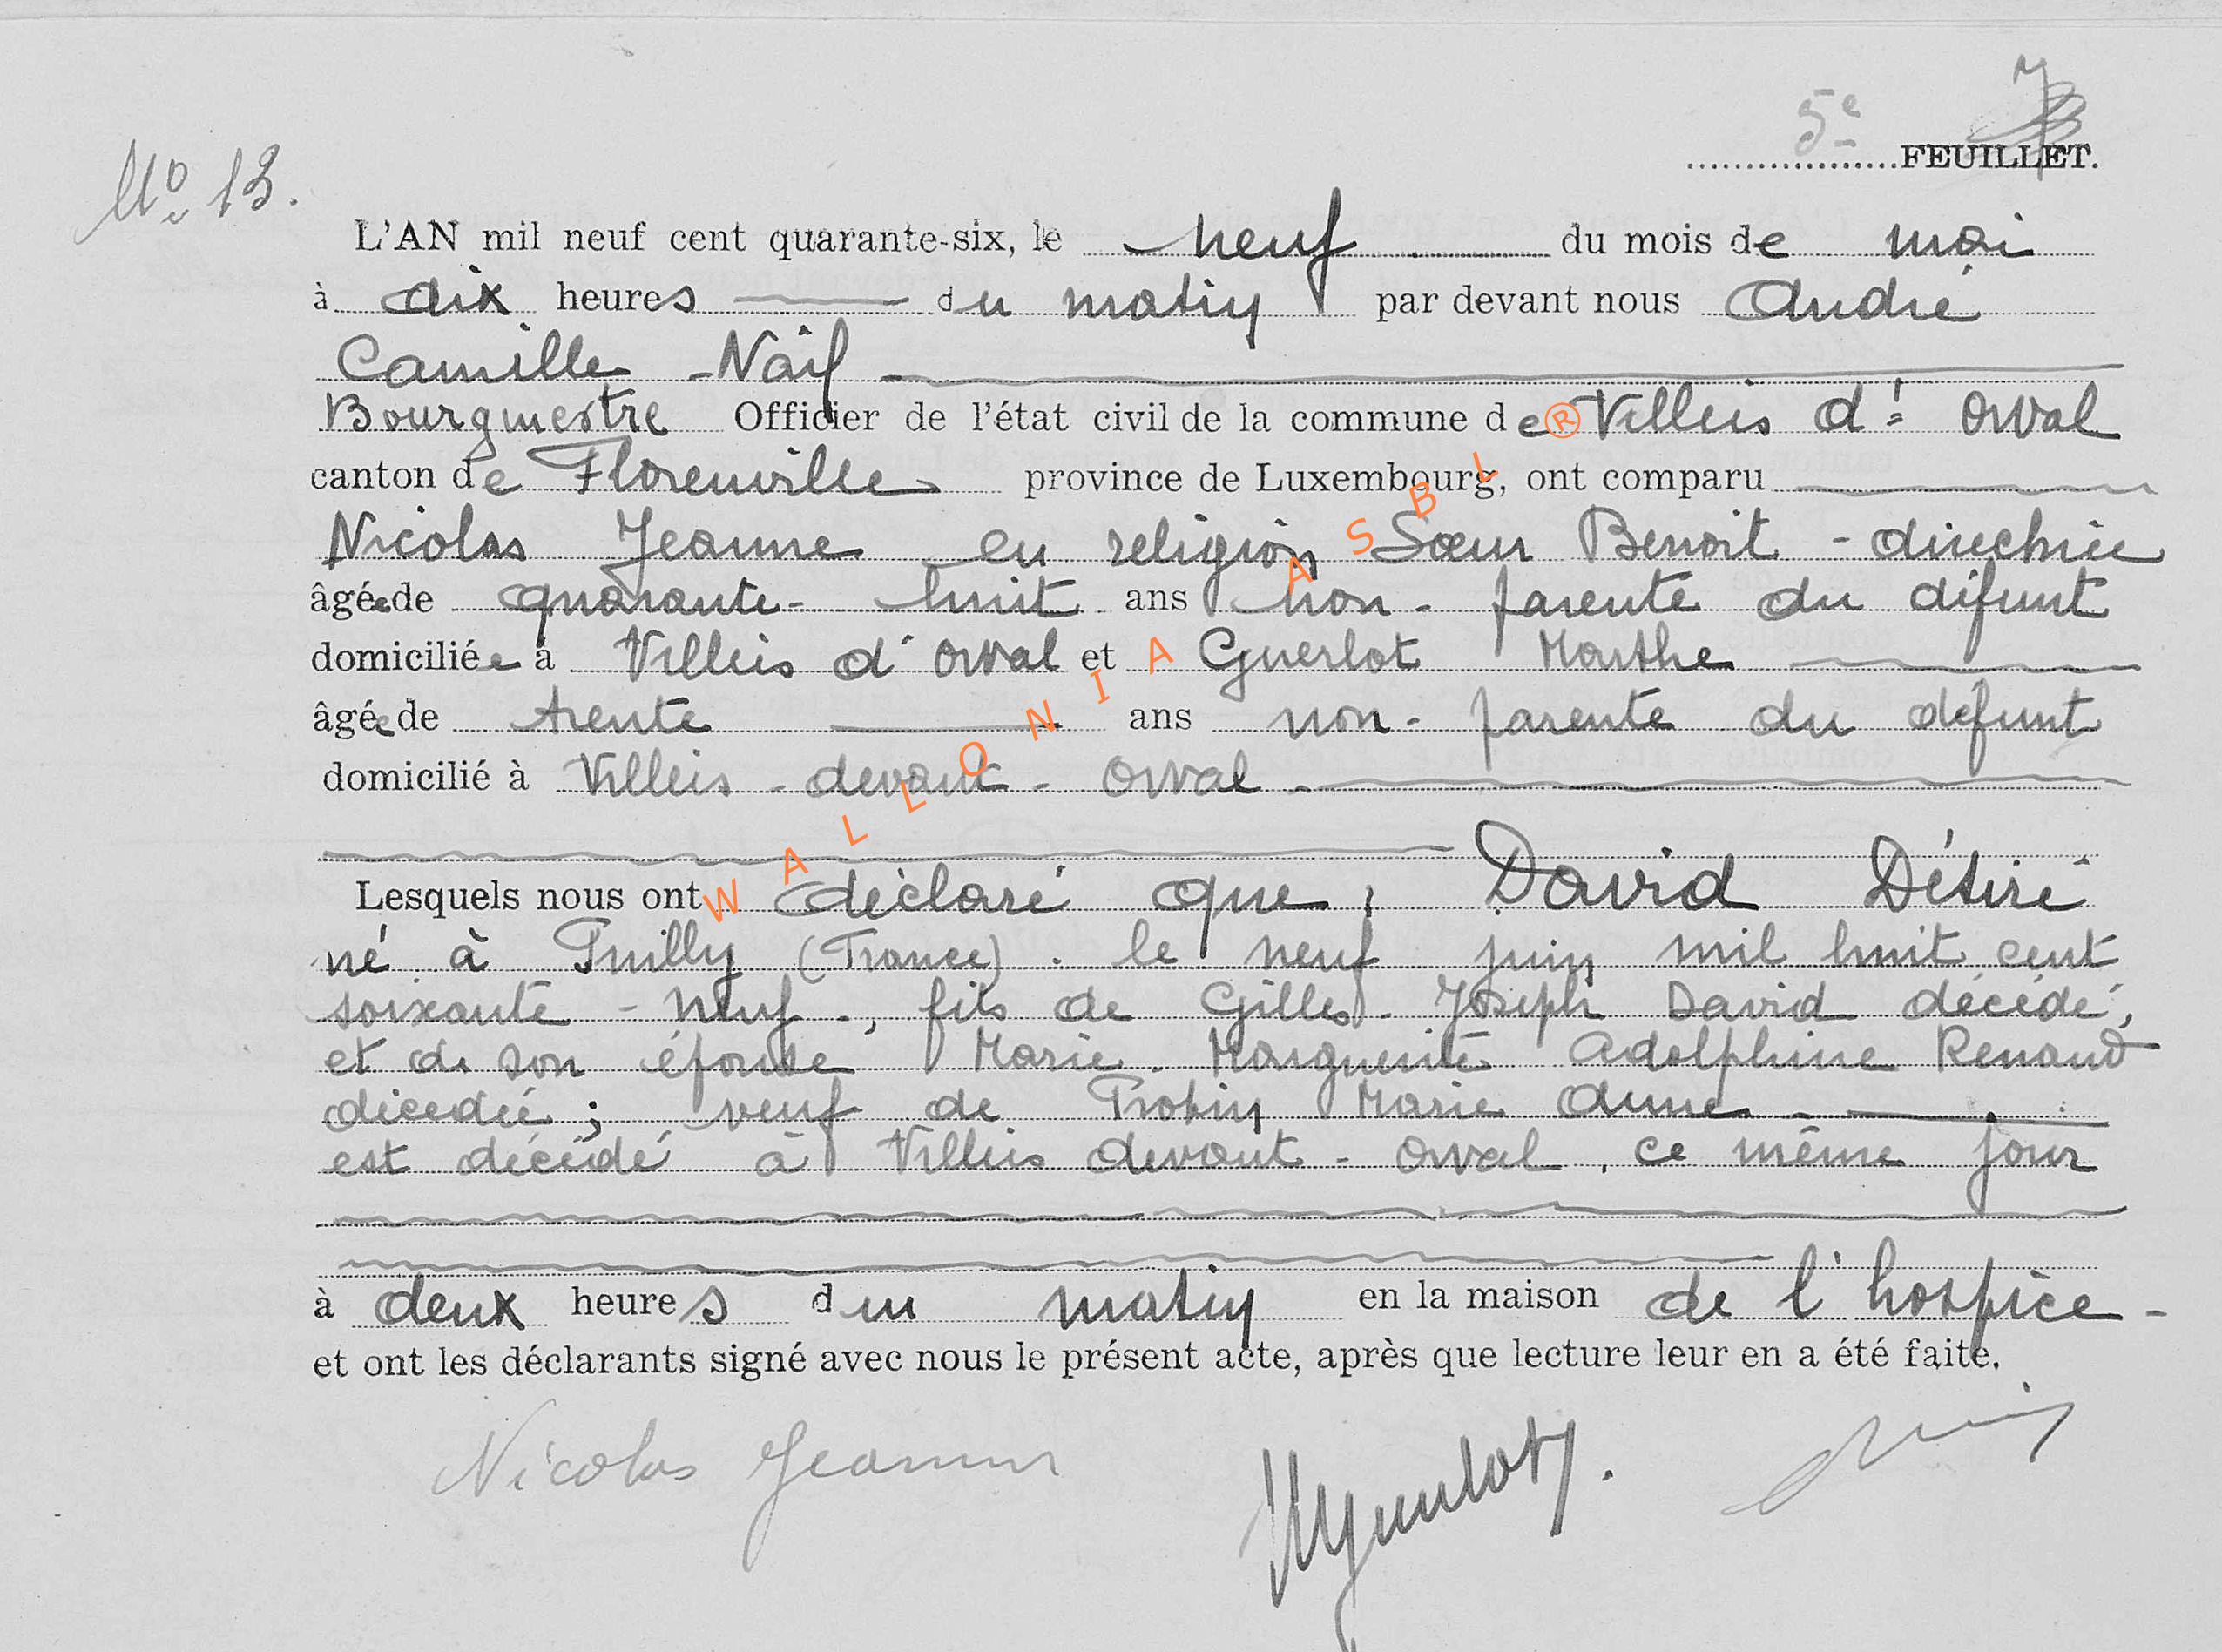 5e 7
FEUILLET.
No 13.
L'AN mil neuf cent quarante-six, le neuf du mois de mai
à dix heures du matin par devant nous André
Camille Naif
Bourgmestre Officier de l'état civil de la commune de Villers dt Orval
canton de Florenville province de Luxembourg, ont comparu
Nicolas Jeanne en religion Sœur Benoit - directrice
âgée de quarante-huit ans non-parente du défunt
domiciliée à Villers d'Orval et Guerlot Marthe
âgée de trente ans non-parente du défunt
domicilié à Villers-devant-Orval
Lesquels nous ont déclaré que, David Désiré
né à Puilly (France). le neuf juin mil huit cent
soixante-neuf, fils de Gilles-Joseph David décédé,
et de son épouse Marie-Marguerite Adolphine Renaud
décédée; veuf de Probin Marie Anne
est décédé à Villers devant-Orval, ce même jour
à deux heures du matin en la maison de l'hospice
et ont les déclarants signé avec nous le présent acte, après que lecture leur en a été faite.
Nicolas Jeanne MGuerlot.
WALLONIA ASBL ®